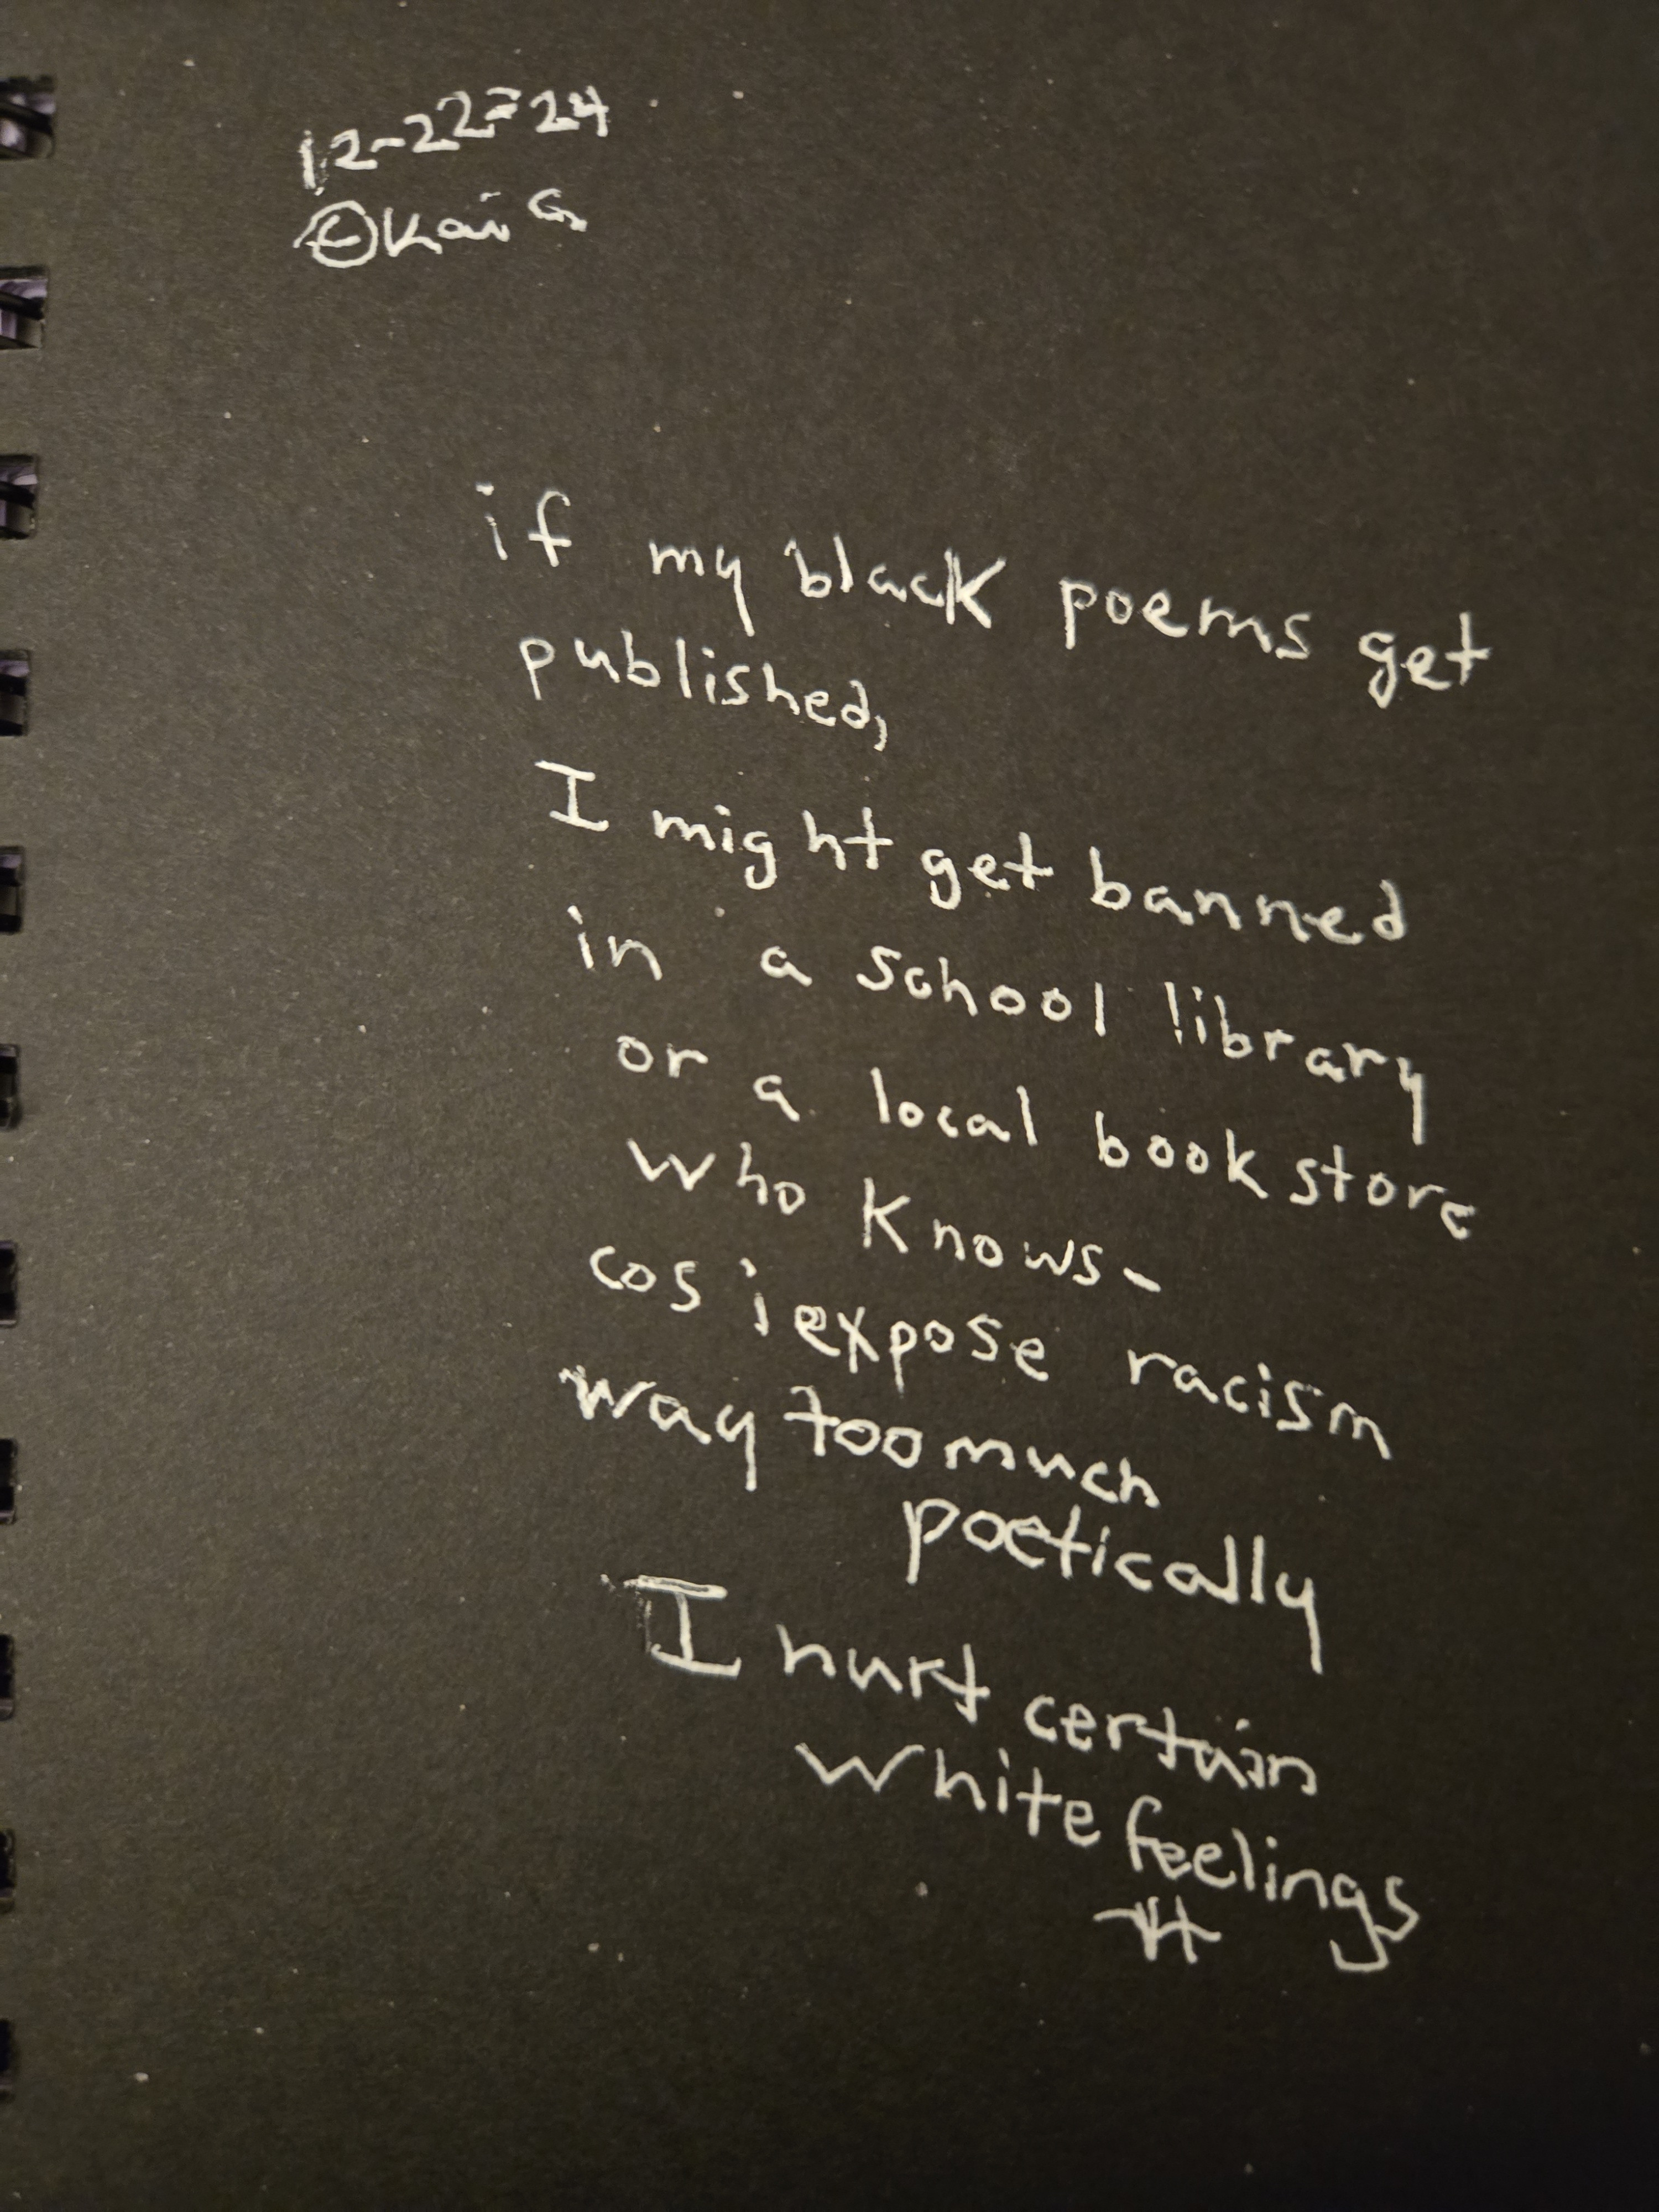 12-22-24
©Kai G
if my black poems get
published,
I might get banned
in a school library
or a local book store
who knows-
cos i expose racism
way too much
poetically
I hurt certain
white feelings